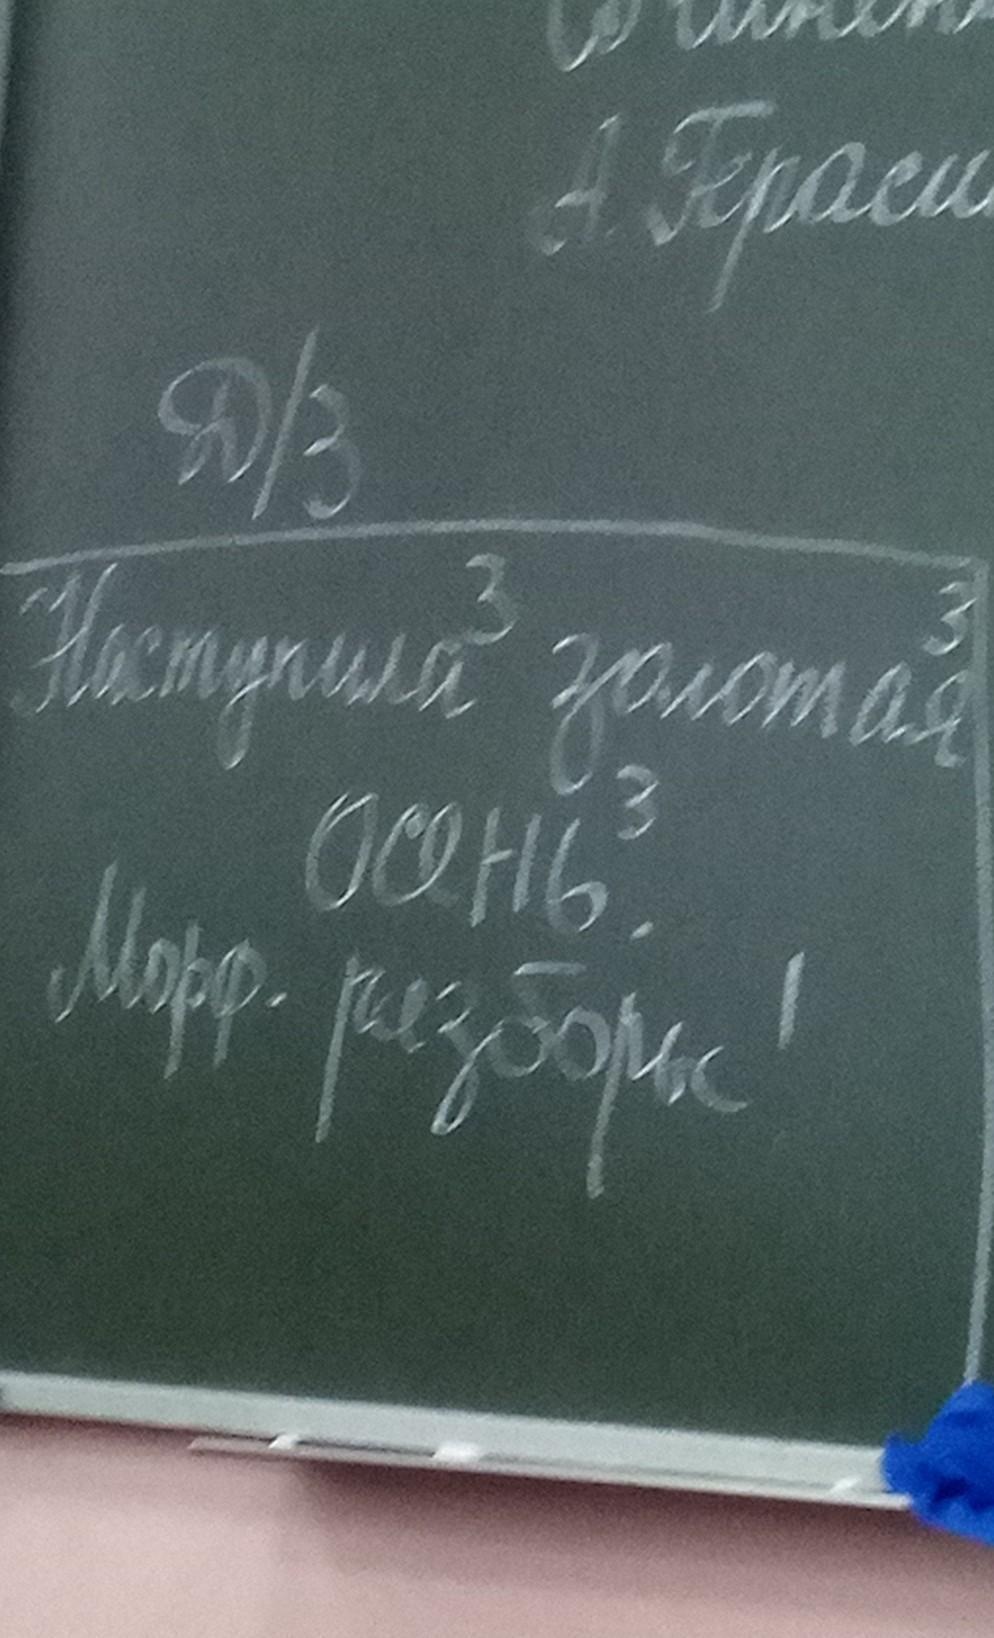 А. Гераси
Д/З
Наступила³ золотая³
осень³.
Морф. разборы!